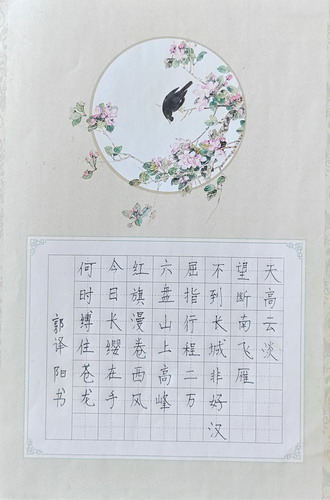 天高云淡
望断南飞雁
不到长城非好汉
屈指行程二万
六盘山上高峰
红旗漫卷西风
今日长缨在手
何时缚住苍龙
郭译阳书